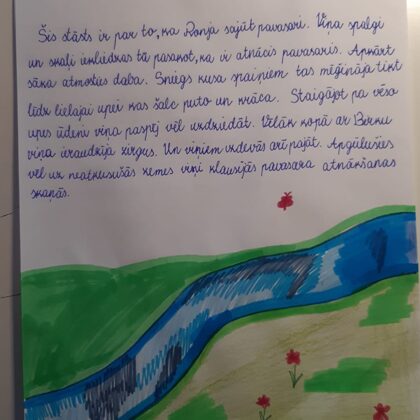 Šis stāsts ir par to, ka Ronja sajūt pavasari. Viņa spalgi
un skaļi iekliedzas tā pasakot, ka ir atnācis pavasaris. Apkārt
sāka atmosties daba. Sniegs kusa spaiņiem tas mēģināja tikt
līdz lielajai upei kas šalc puto un krāca. Staigājot pa vēso
upes ūdeni viņa paspēj vēl uzdziedāt. Vēlāk kopā ar Berku
viņa ieraudzīja zirgus. Un viņiem izdevās arī pajāt. Apgūlušies
vēl uz neatkusušās zemes viņi klausījās pavasara atnākšanas
skaņās.